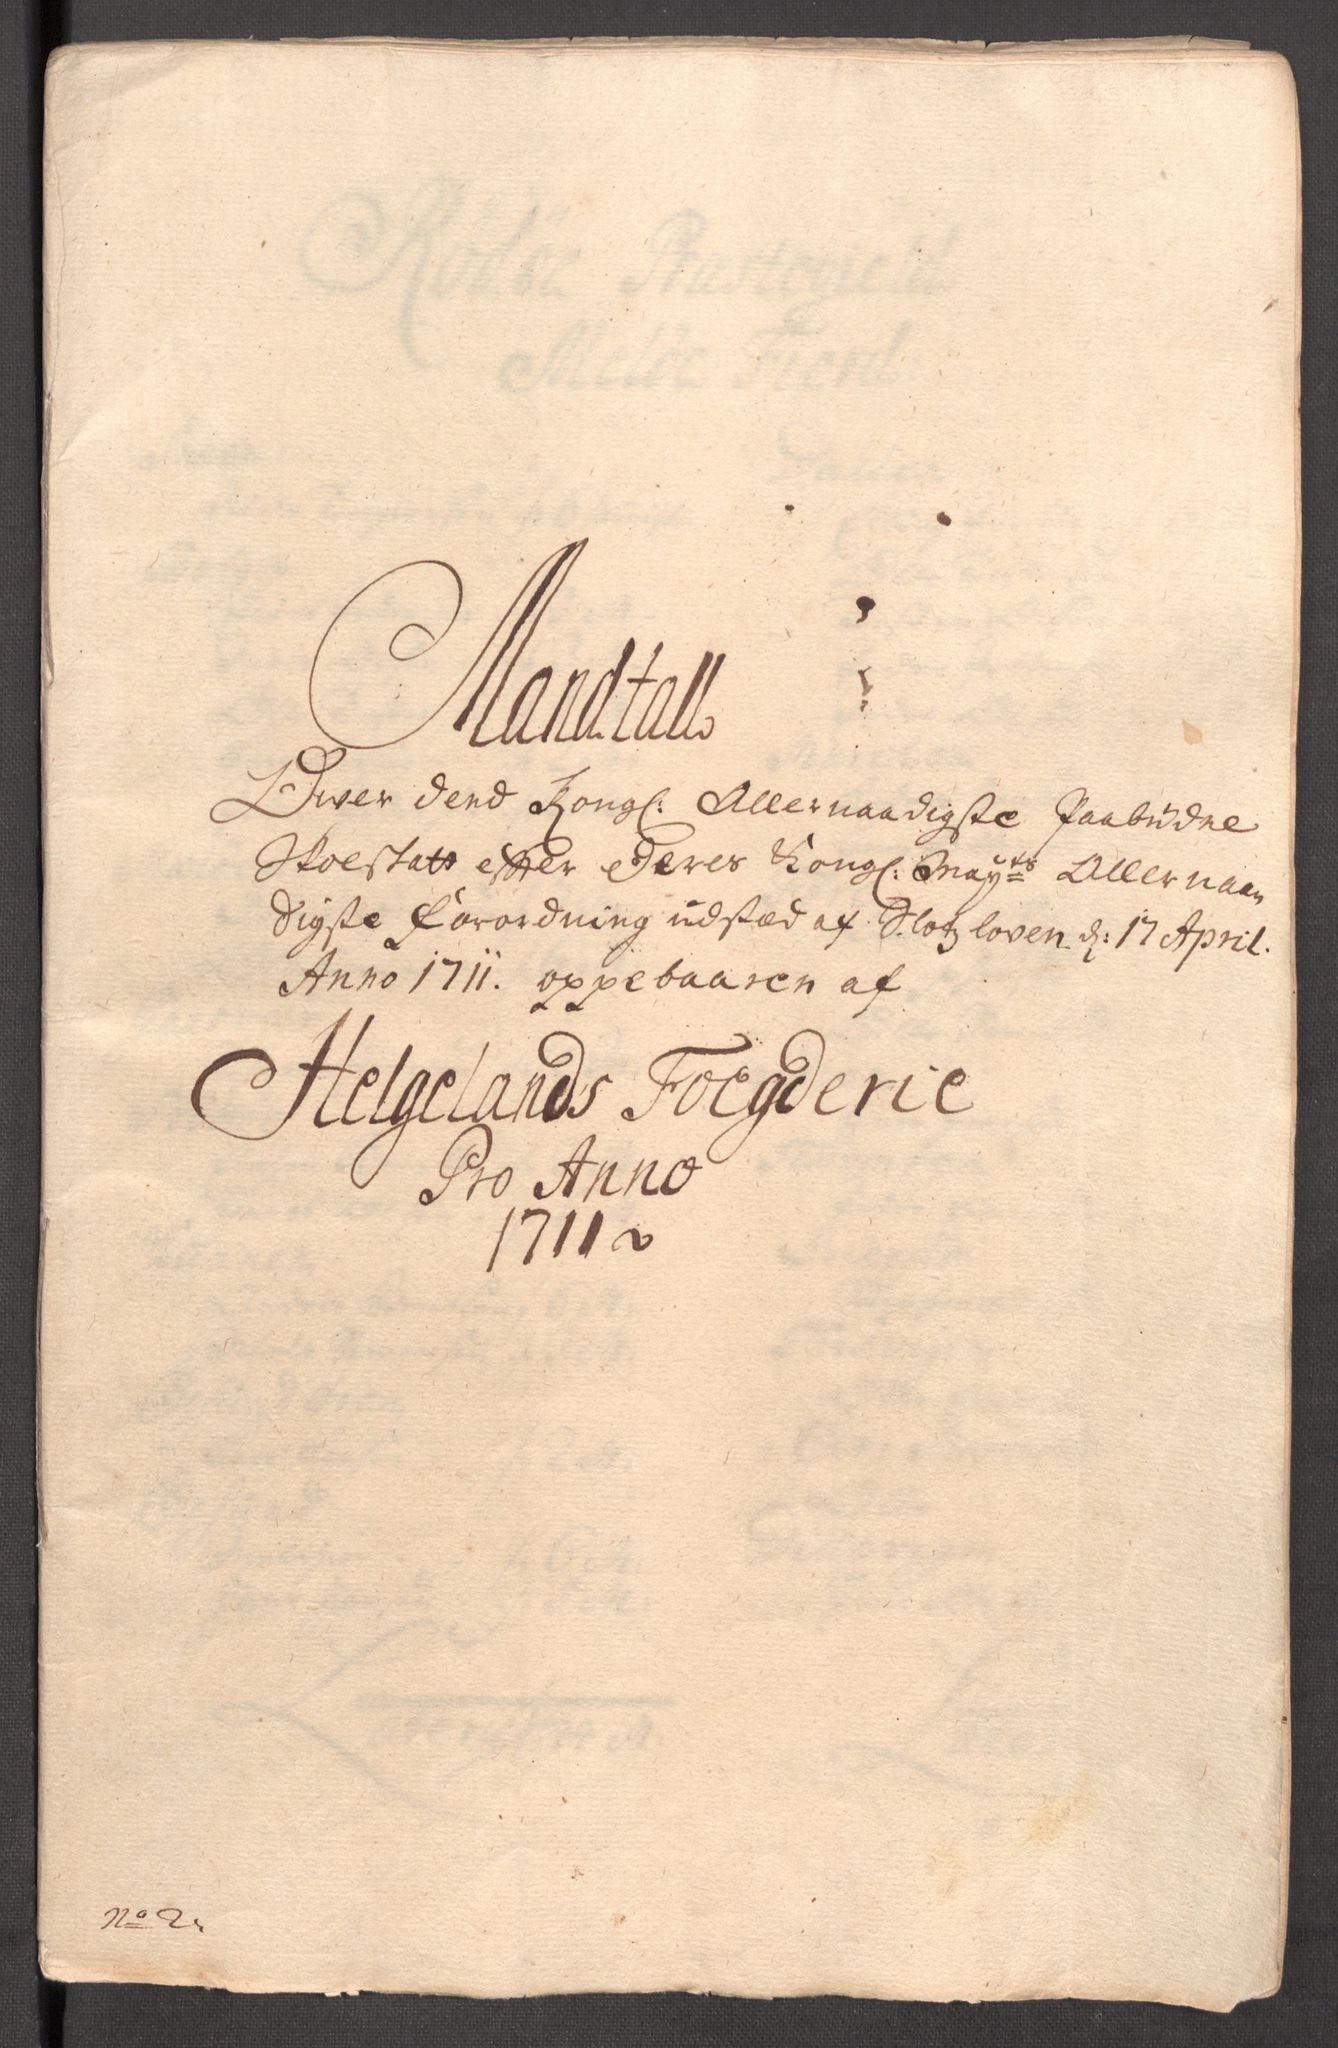 Mandtall
Ower dend Kongl: Allernaadigste Paabudne
Skoeskatt efter Deres Kongl: Mayts Allernaa
digste Forordning udstæd af Slotzloven d: 17 April.
Anno 1711. oppebaaren af
Helgelands Foegderie
Pro Anno
1711
No 2